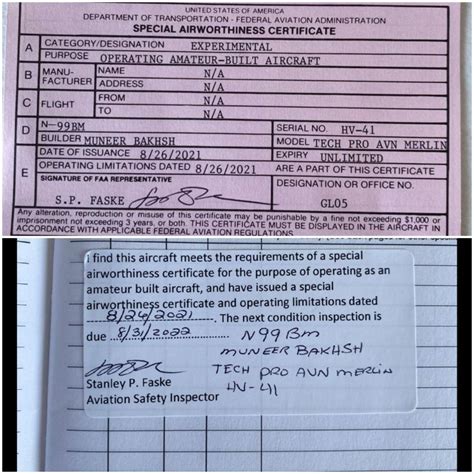 UNITED STATES OF AMERICA
DEPARTMENT OF TRANSPORTATION - FEDERAL AVIATION ADMINISTRATION
SPECIAL AIRWORTHINESS CERTIFICATE
A CATEGORY/DESIGNATION EXPERIMENTAL
PURPOSE OPERATING AMATEUR-BUILT AIRCRAFT
B MANU-FACTURER NAME N/A
ADDRESS N/A
C FLIGHT FROM N/A
TO N/A
D N-99BM SERIAL NO. HV-41
BUILDER MUNEER BAKHSH MODEL TECH PRO AVN MERLIN
E DATE OF ISSUANCE 8/26/2021 EXPIRY UNLIMITED
OPERATING LIMITATIONS DATED 8/26/2021 ARE A PART OF THIS CERTIFICATE
SIGNATURE OF FAA REPRESENTATIVE DESIGNATION OR OFFICE NO.
S.P. FASKE GL05
Any alteration, reproduction or misuse of this certificate may be punishable by a fine not exceeding $1,000 or
imprisonment not exceeding 3 years, or both. THIS CERTIFICATE MUST BE DISPLAYED IN THE AIRCRAFT IN
ACCORDANCE WITH APPLICABLE FEDERAL AVIATION REGULATIONS.
I find this aircraft meets the requirements of a special
airworthiness certificate for the purpose of operating as an
amateur built aircraft, and have issued a special
airworthiness certificate and operating limitations dated
8/26/2021. The next condition inspection is
due 8/31/2022 N99BM
MUNEER BAKHSH
TECH PRO AVN MERLIN
Stanley P. Faske HV-41
Aviation Safety Inspector